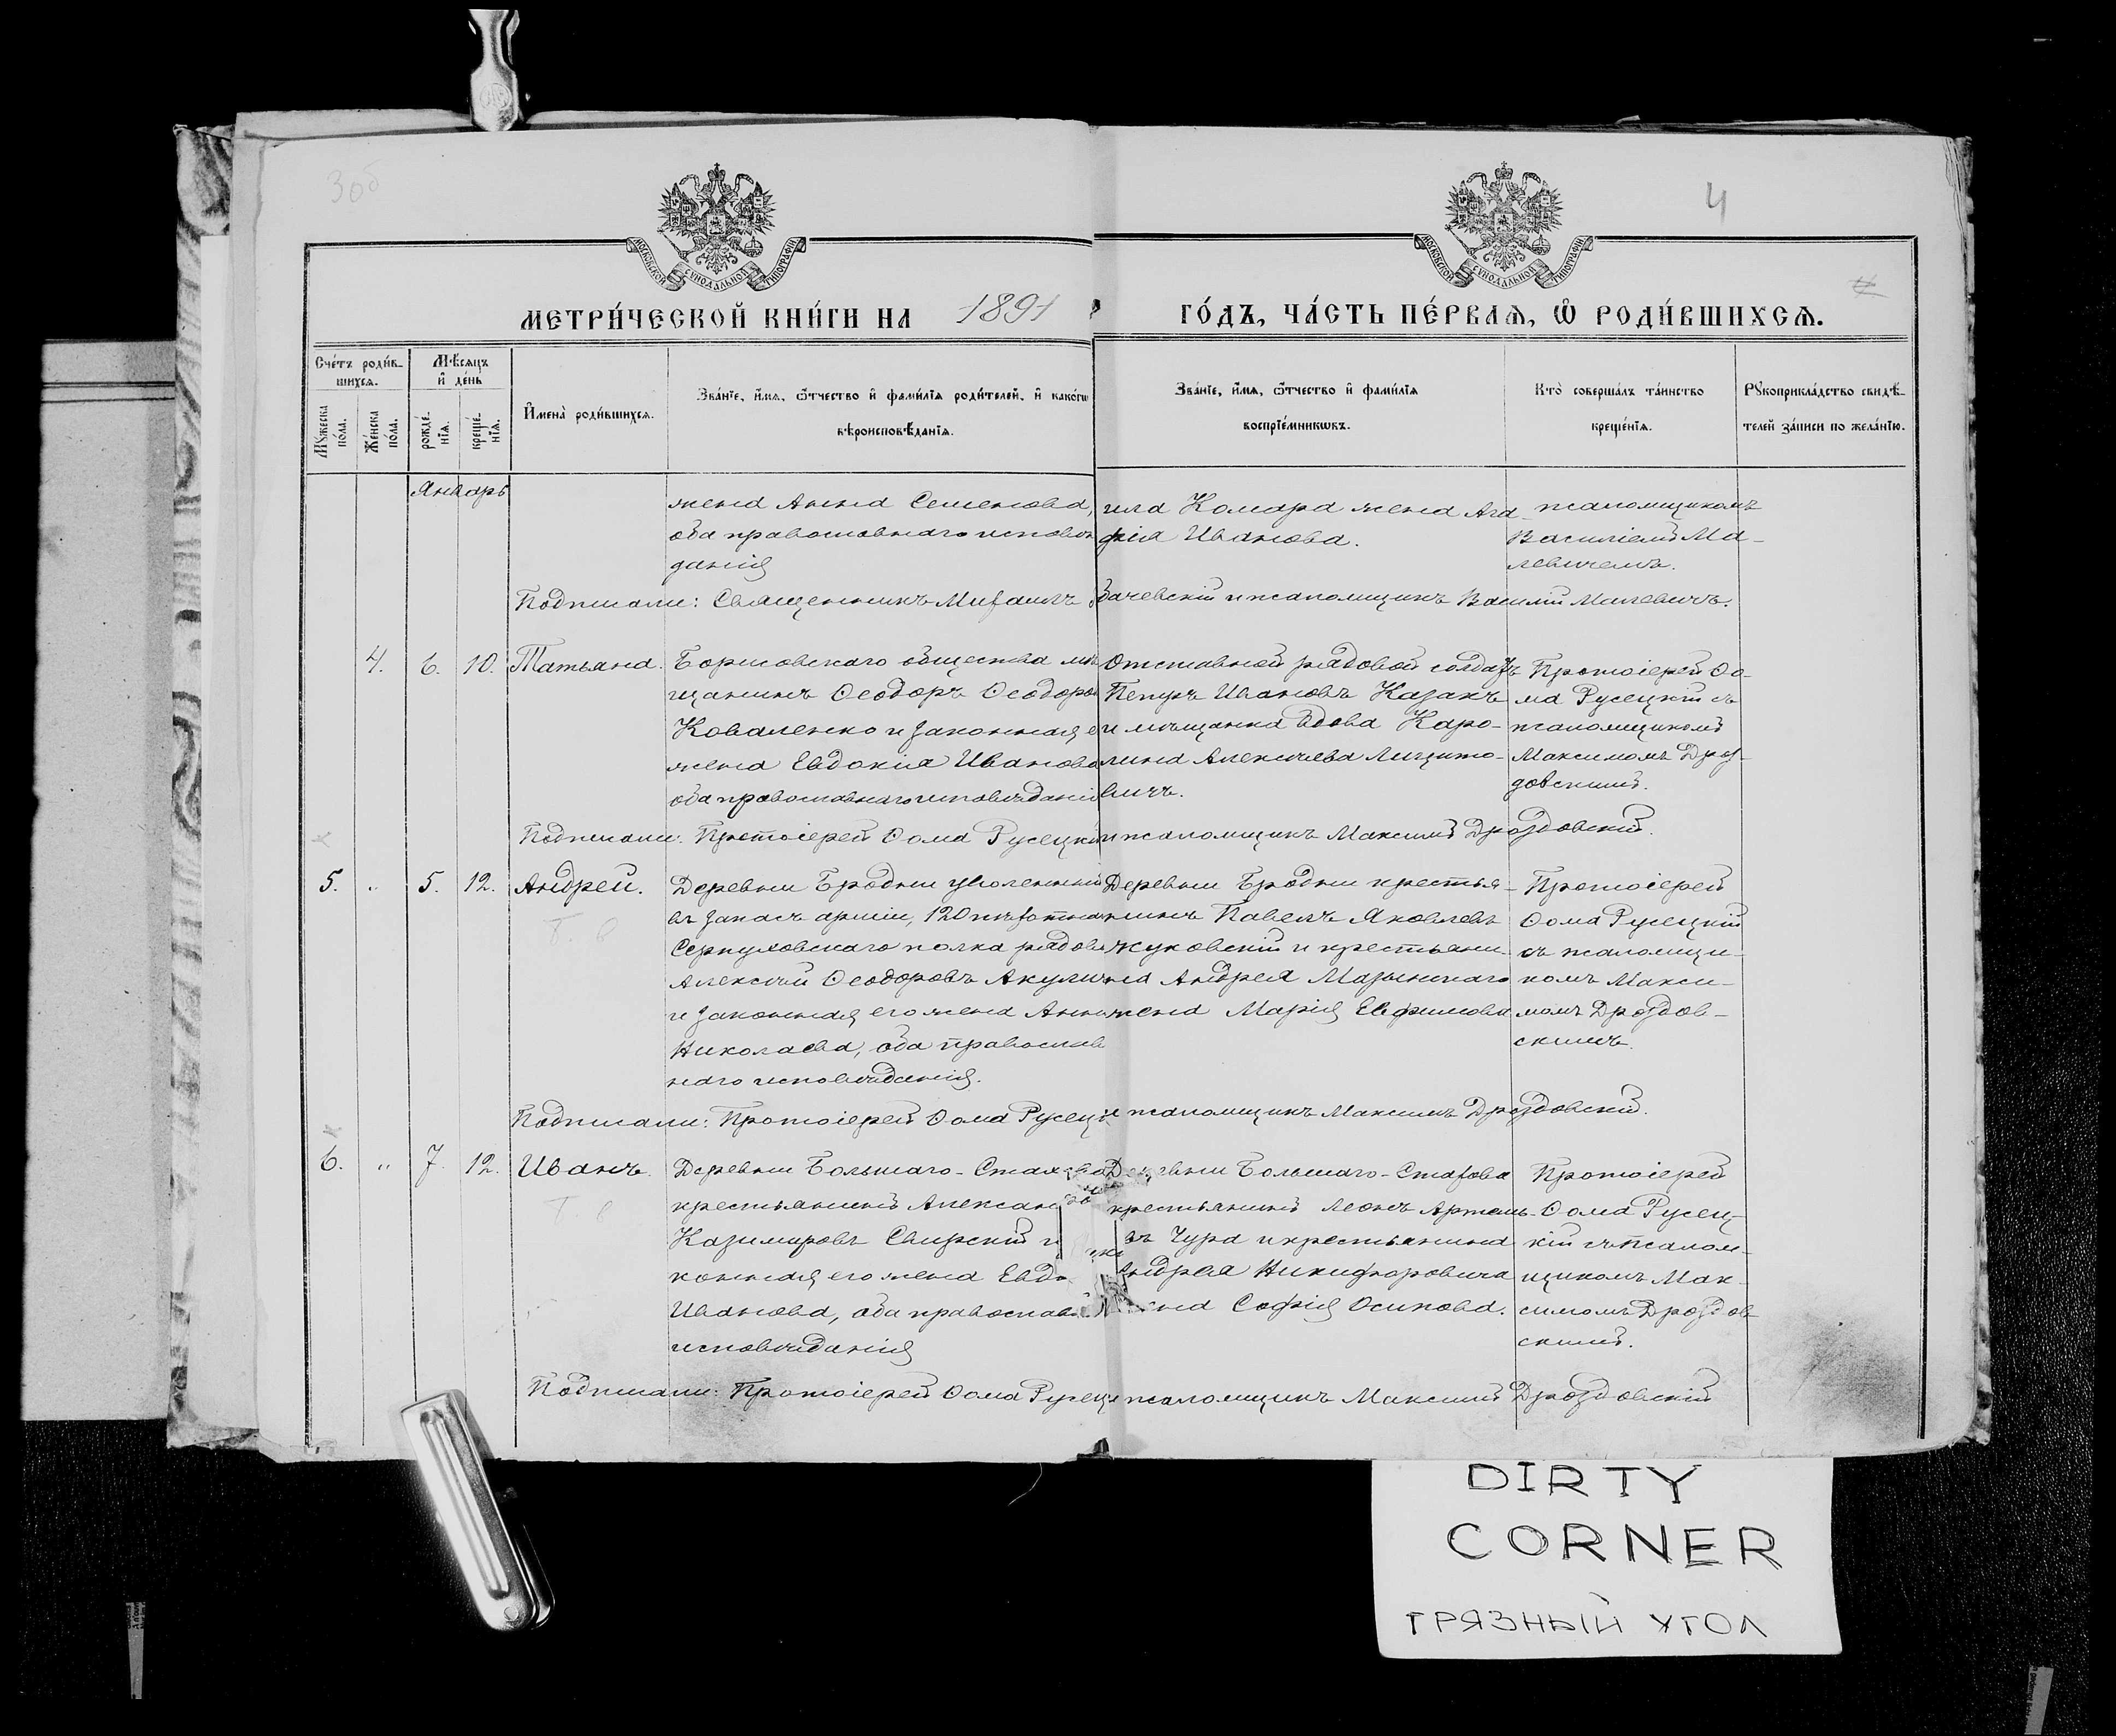 3об
4
МОСКОВСКОЙ СѴНОДАЛЬНОЙ ТИПОГРАФІИ
МОСКОВСКОЙ СѴНОДАЛЬНОЙ ТИПОГРАФІИ
МЕТРИ́ЧЕСКОЙ КНИ́ГИ НА 1891 ГО́ДЪ, ЧА́СТЬ ПЕ́РВАѦ, Ѽ РОДИ́ВШИХСѦ.
Сче́тъ роди́в-
шихсѧ.
Мꙋжеска по́ла.
Же́нска по́ла.
Мѣ́сѧцъ и҆ де́нь
рожде́-нїѧ.
креще́-нїѧ.
И҆мена̀ роди́вшихсѧ.
Зва́нїе, и҆́мѧ, ѻ҆́тчество и҆ фами́лїѧ роди́телей, и҆ како́гѡ
вѣроисповѣ́данїѧ.
Зва́нїе, и҆́мѧ, ѻ҆́тчество и҆ фами́лїѧ
воспрїе́мникѡвъ.
Кто̀ соверша́лъ та́инство
креще́нїѧ.
Рꙋкоприкла́дство свидѣ́-
телей за́писи по жела́нїю.
Январь
жена Анна Семенова,
оба православнаго исповѣ
данія
гила Комара жена Ага-
фія Иванова.
псаломщикомъ
Василіемъ Ма-
левичемъ.
Подписали: Священникъ Михаилъ бачевскій и псаломщикъ Василій Малевичъ.
4. 6. 10. Татьяна.
Борисовскаго общества мѣ
щанинъ Ѳеодоръ Ѳеодоров
Коваленко и законная е
жена Евдокія Иванова
оба православнаго исповѣданія
Отставной рядовой солдатъ
Петръ Ивановъ Казакъ
и мѣщанка вдова Каро-
лина Алексѣева
вичъ.
Протоіерей Ѳо-
ма Русецкій съ
псаломщикомъ
Максимомъ Дроз-
довскимъ.
Подписали: Протоіерей Ѳома Русецкій и псаломщикъ Максимъ Дроздовскій.
5. " 5. 12. Андрей.
Т. в
Деревни Бродни уволенный
въ запасъ арміи, 120 пѣхотна
Серпуховскаго полка рядово
Алексѣй Ѳеодоровъ Акулич
и законная его жена Анна
Николаева, оба православ
наго исповѣданія.
Деревни Бродни крестья-
нинъ Павелъ Яковлевъ
Жуковскій и крестьяни-
на Андрея Марынскаго
жена Марія Евфимова
Протоіерей
Ѳома Русецкій
съ псаломщи-
комъ Макси-
момъ Дроздов-
скимъ.
Подписали: Протоіерей Ѳома Русецк и псаломщикъ Максимъ Дроздовскій.
6. " 7. 12. Иванъ.
Т. в
Деревни Большаго-Стахова
крестьянинъ Алексан
Казимировъ Свирскій и
конная его жена Евдо
Иванова, оба православ
исповѣданія
Деревни Большаго-Стахова
крестьянинъ Леонъ Артемь-
въ Чура и крестьянина
Андрея Никифоровича
жена Софія Осипова.
Протоіерей
Ѳома Русец-
кій съ псалом-
щикомъ Мак-
симомъ Дроздов
скимъ.
Подписали: Протоіерей Ѳома Русецк и псаломщикъ Максимъ Дроздовскій
DIRTY
CORNER
ГРЯЗНЫЙ УГОЛ